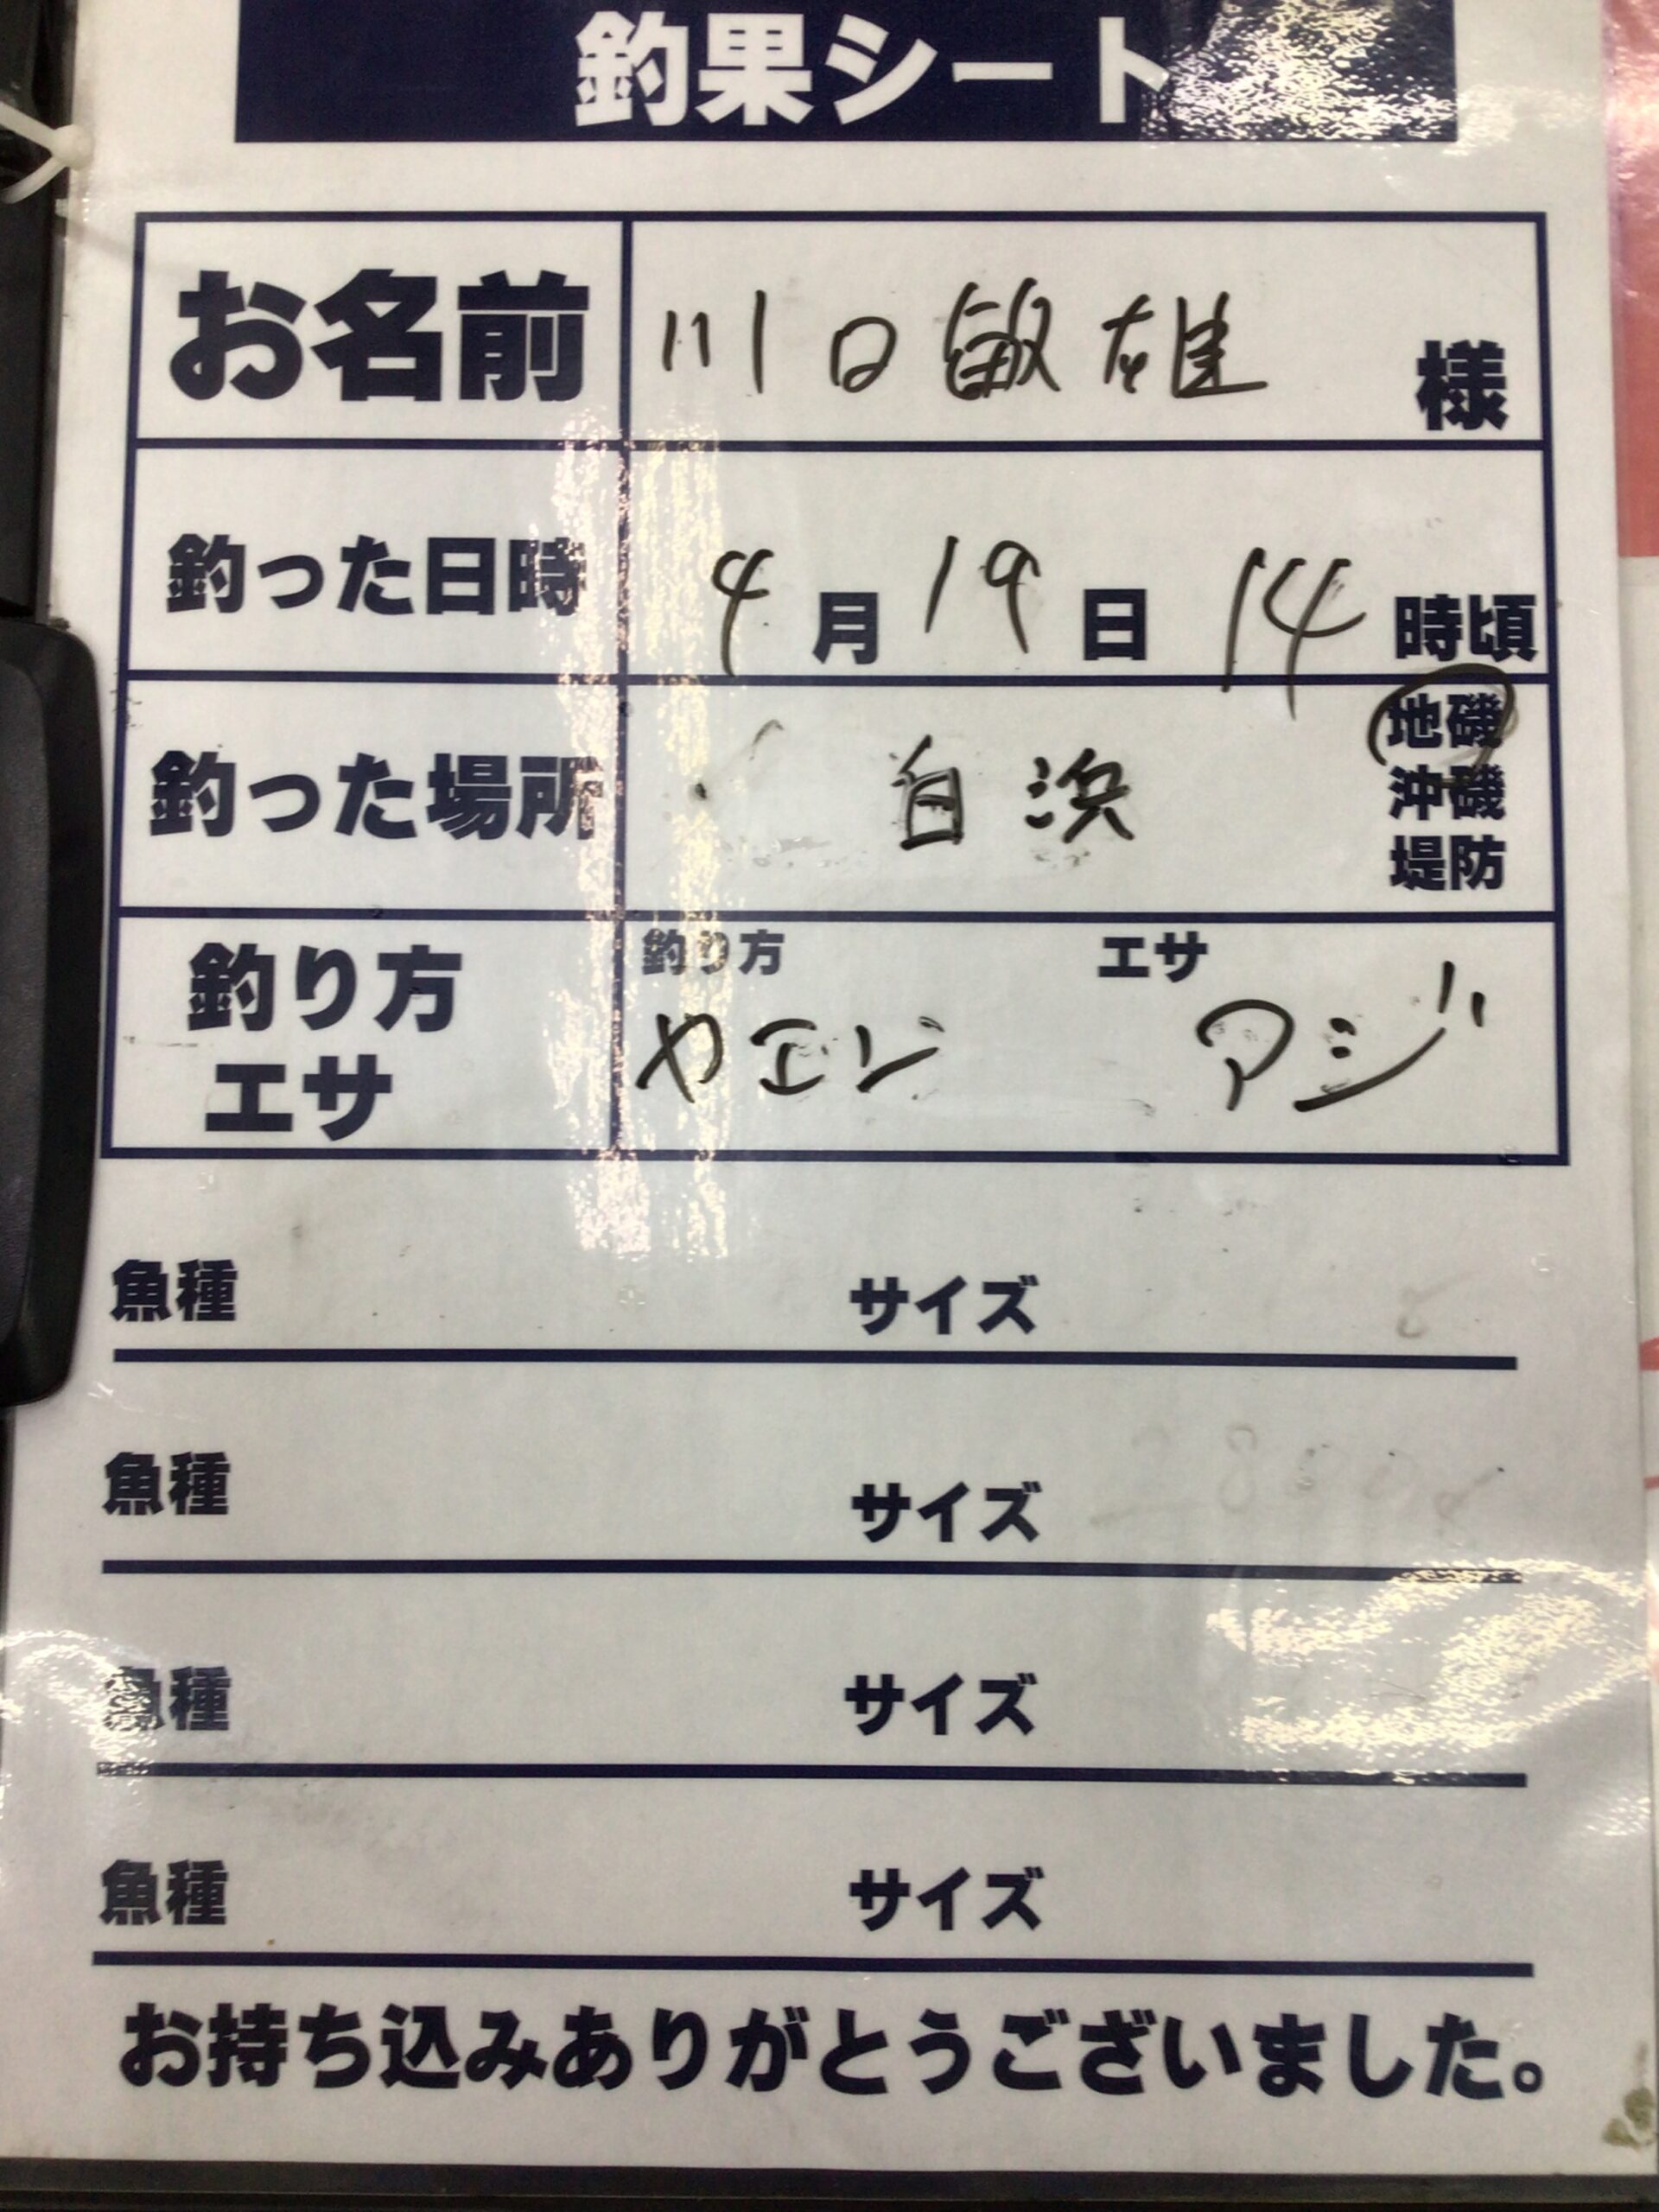 釣果シート
お名前 川口敏雄 様
釣った日時 4月19日 14時頃
釣った場所 白浜 地磯
沖磯
堤防
釣り方 エサ
釣り方 ヤエン エサ アジ
魚種 サイズ
魚種 サイズ
魚種 サイズ
魚種 サイズ
お持ち込みありがとうございました。